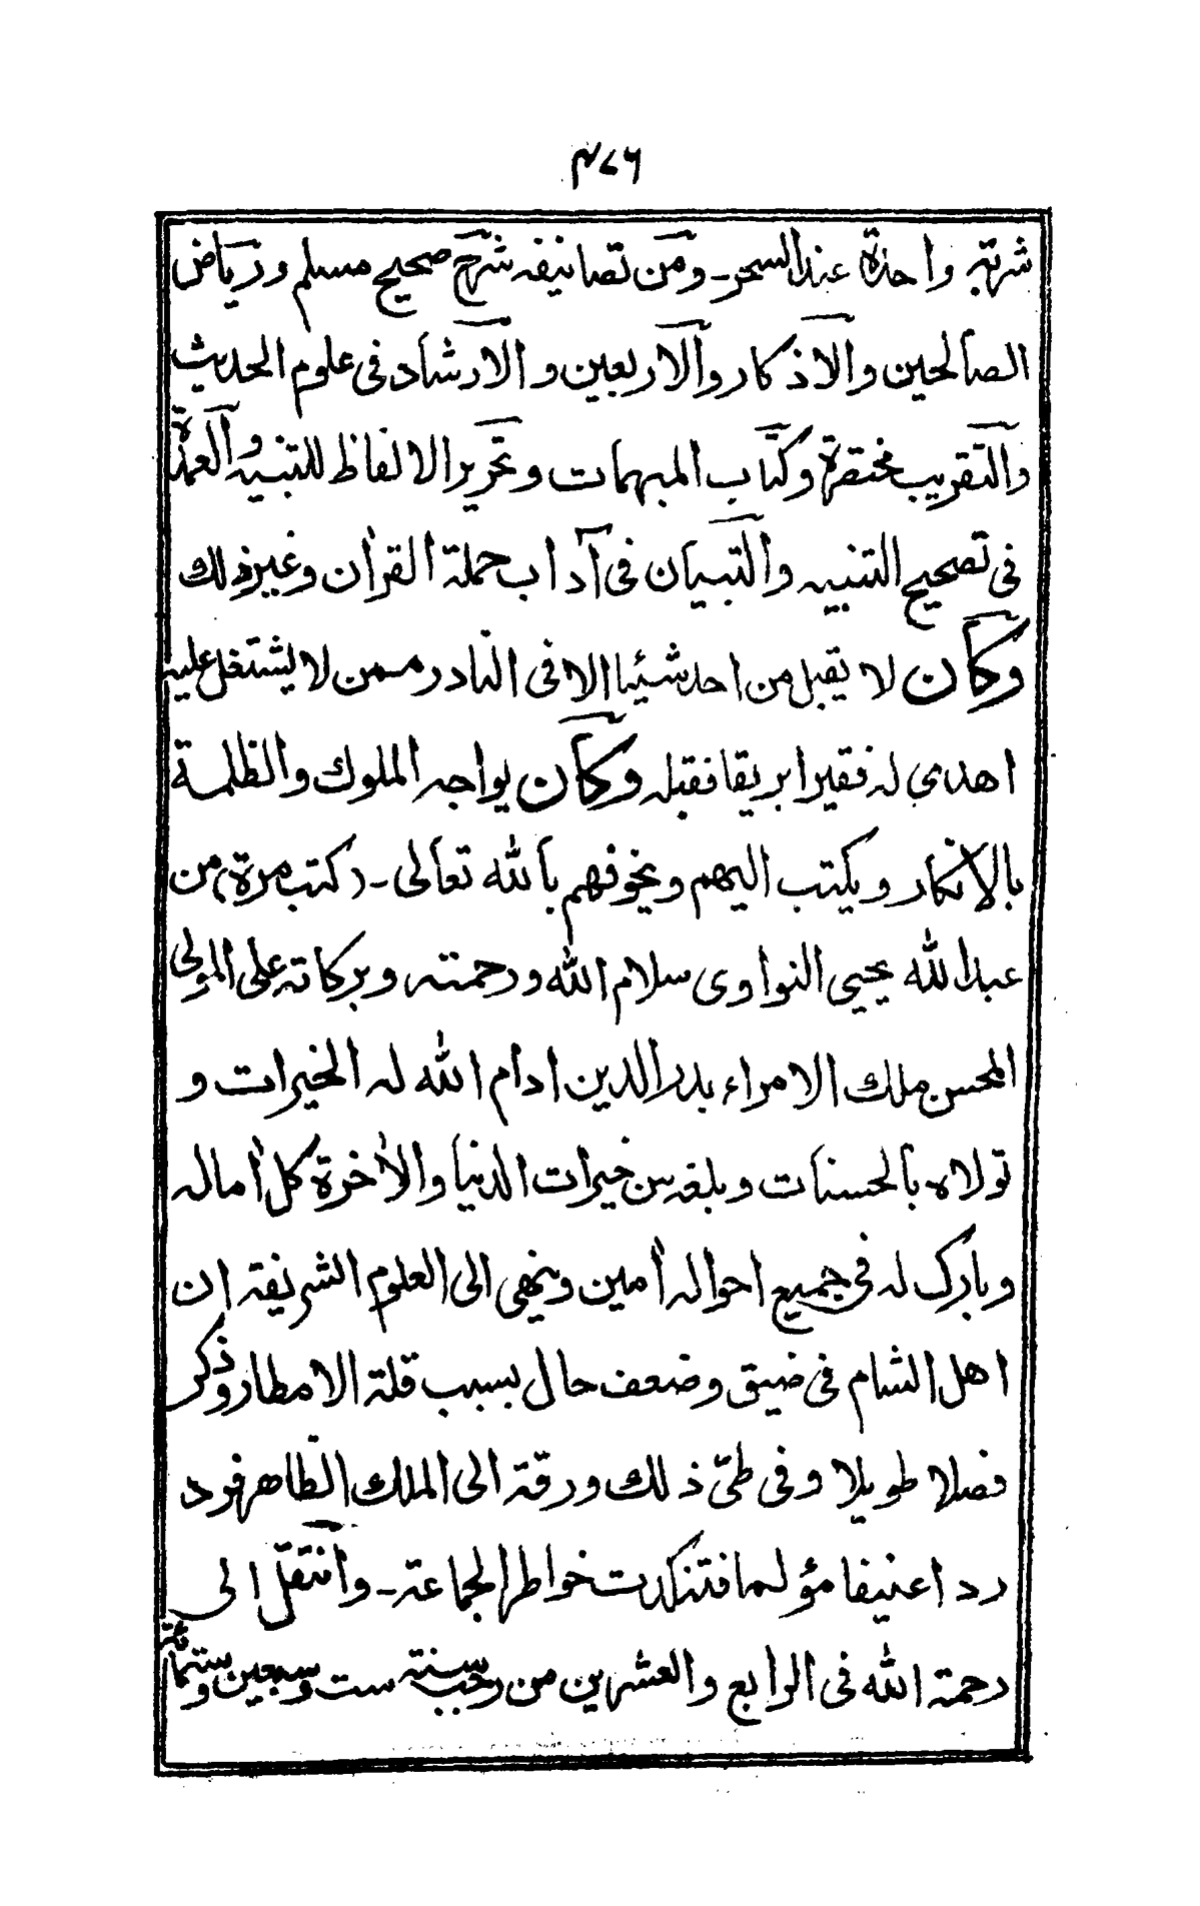 ٣٧٦
شربة واحدة عند السحر۔ ومن تصانيفه شرح صحيح مسلم ورياض
الصالحين والاذكار والاربعين والارشاد فى علوم الحديث
والتقريب مختصرة وكتاب المبهمات وتحرير الالفاظ للتنبيه والعمدة
فى تصحيح التنبيه والتبيان فى آداب حملة القرأن وغير ذلك
وكان لا يقبل من احد شيئا الا فى النادر ممن لا يشتغل عليه
اهدى له فقير ابريقا فقبله وكان يواجه الملوك والظلمة
بالانكار ويكتب اليهم ويخوفهم بالله تعالى۔ (كتب مرة) من
عبد الله يحيى النواوى سلام الله ورحمته وبركاته على المولى
المحسن ملك الامراء بدر الدين ادام الله له الخيرات و
تولاه بالحسنات وبلغه من خيرات الدنيا والأخرة كل أماله
وبارك له فى جميع احواله أمين وينهى الى العلوم الشريفة ان
اهل الشام فى ضيق وضعف حال بسبب قلة الامطار وذكر
فصلا طويلا وفى طىّ ذلك ورقة الى الملك الظاهر فرد
ردا عنيفا مؤلما فتنكدت خواطر الجماعة۔ وانتقل الى
رحمة الله فى الرابع والعشرين من رجب سنة ست وسبعين وستمائة